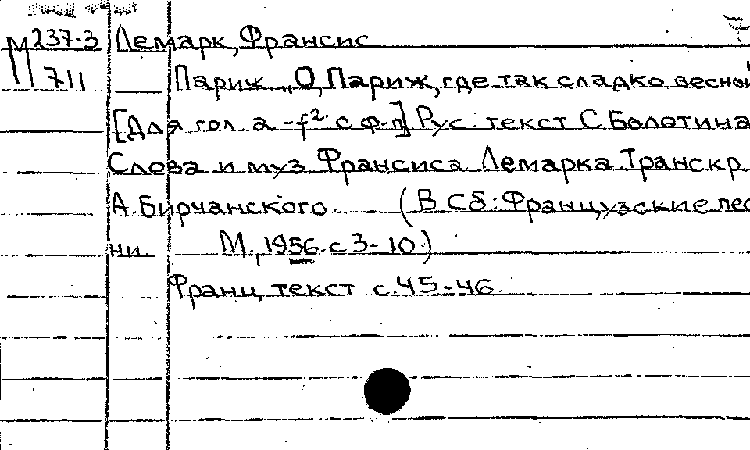 М237-3 Лемарк, Франсис
711 — Париж „О, Париж, где так сладко весной"
[Для гол. a - f² с ф-п] Рус. текст С. Болотина
Слова и муз. Франсиса Лемарка. Транскр.
А. Бирчанского. (В сб.: Французские пес
ни М., 1956. с 3-10.)
Франц. текст с. 45-46